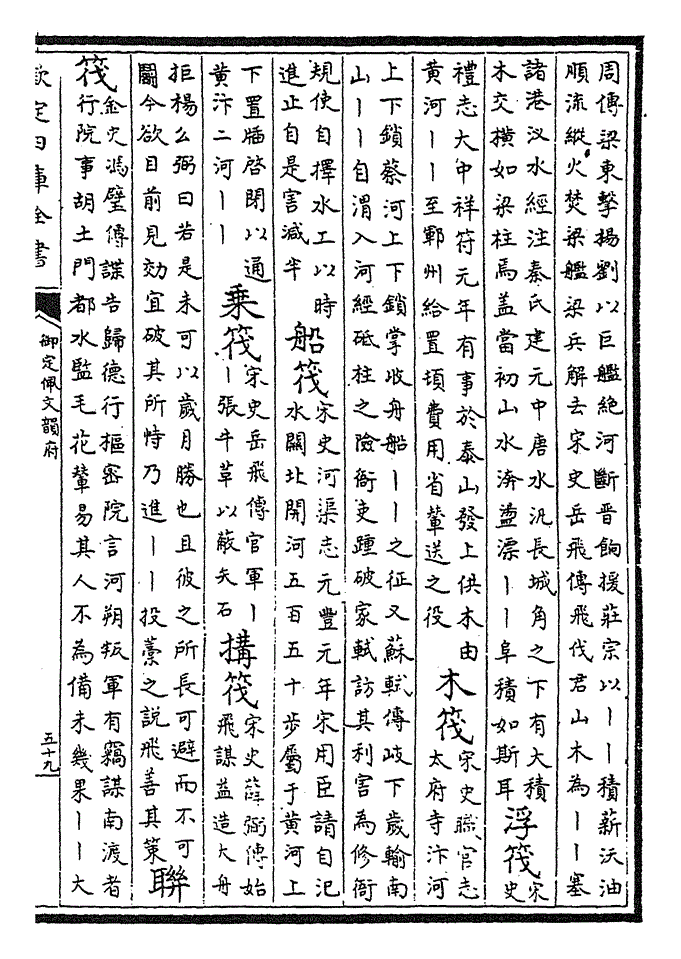 周傳梁東擊楊劉以巨艦絶河斷晉餉援莊宗以丨丨積薪沃油
順流縱火焚梁艦梁兵解去宋史岳飛傳飛伐君山木為丨丨塞
諸港汊水經注秦氏建元中唐水汎長城角之下有大積
木交横如梁柱焉盖當初山水渀盪漂丨丨阜積如斯耳
浮筏
宋
史
禮志大中祥符元年有事於泰山發上供木由
黄河丨丨至鄆州給置頓費用省輦送之役
木筏
宋史職官志
太府寺汴河
上下鎖蔡河上下鎖掌收舟船丨丨之征又蘇軾傳岐下歲輸南
山丨丨自渭入河經砥柱之險衙吏踵破家軾訪其利害為修衙
規使自擇水工以時
進止自是害減半
船筏
宋史河渠志元豐元年宋用臣請自汜
水關北開河五百五十步屬于黄河上
下置牐啓閉以通
黄汴二河丨丨
乗筏
宋史岳飛傳官軍丨
丨張牛草以蔽矢石
搆筏
宋史薛弼傳始
飛謀益造大舟
拒楊么弼曰若是未可以歲月勝也且彼之所長可避而不可
鬭今欲目前見効宜破其所恃乃進丨丨投藁之説飛善其策
聯
筏
金史馮璧傳諜告歸德行樞密院言河朔叛軍有竊謀南渡者
行院事胡土門都水監毛花輦易其人不為備未幾果丨丨大
欽定四庫全書
御定佩文韻府
五十九